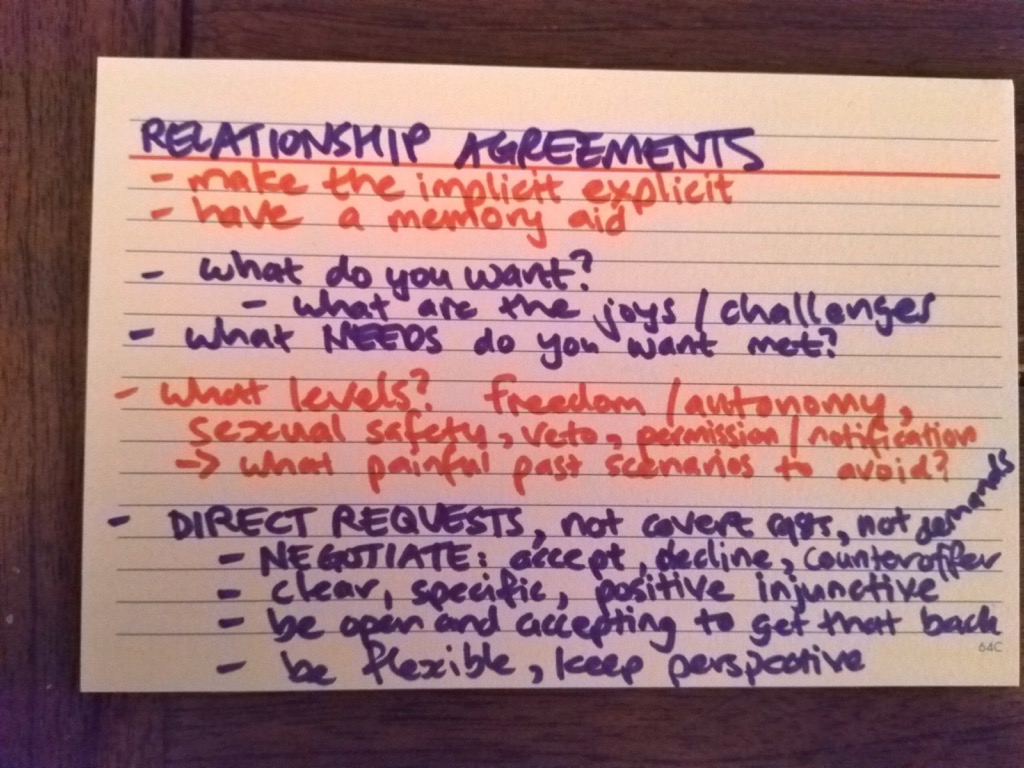 RELATIONSHIP AGREEMENTS
- make the implicit explicit
- have a memory aid
- what do you want?
- what are the joys / challenges
- what NEEDS do you want met?
- what levels? freedom / autonomy,
sexual safety, veto, permission / notification
-> what painful past scenarios to avoid?
- DIRECT REQUESTS, not covert rqsts, not demands
- NEGOTIATE: accept, decline, counteroffer
- clear, specific, positive injunctive
- be open and accepting to get that back
- be flexible, keep perspective
64C